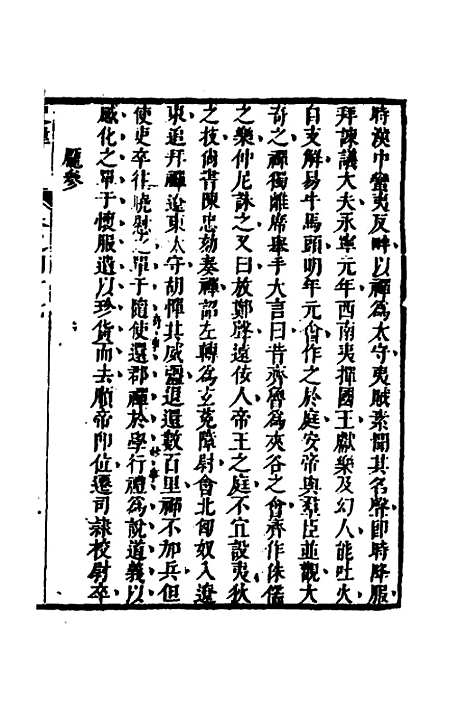 時漢中蠻夷反畔以禪爲太守夷賊素聞其名聲卽時降服
拜諫議大夫永寧元年西南夷撣國王獻樂及幻人能吐火
自支解易牛馬頭明年元會作之於庭安帝與羣臣並觀大
奇之禪獨離席舉手大言曰昔齊魯爲夾谷之會齊作侏儒
之樂仲尼誅之又曰放鄭聲遠佞人帝王之庭不宜設夷狄
之技尚書陳忠劾奏禪詔左轉爲玄菟障尉會北匈奴入遼
東追拜禪遼東太守胡憚其威彊退還數百里禪不加兵但
使吏卒往曉慰之單于隨使還郡禪於學行禮爲說道義以
感化之單于懷服遺以珍貨而去順帝卽位遷司隸校尉卒
龐參